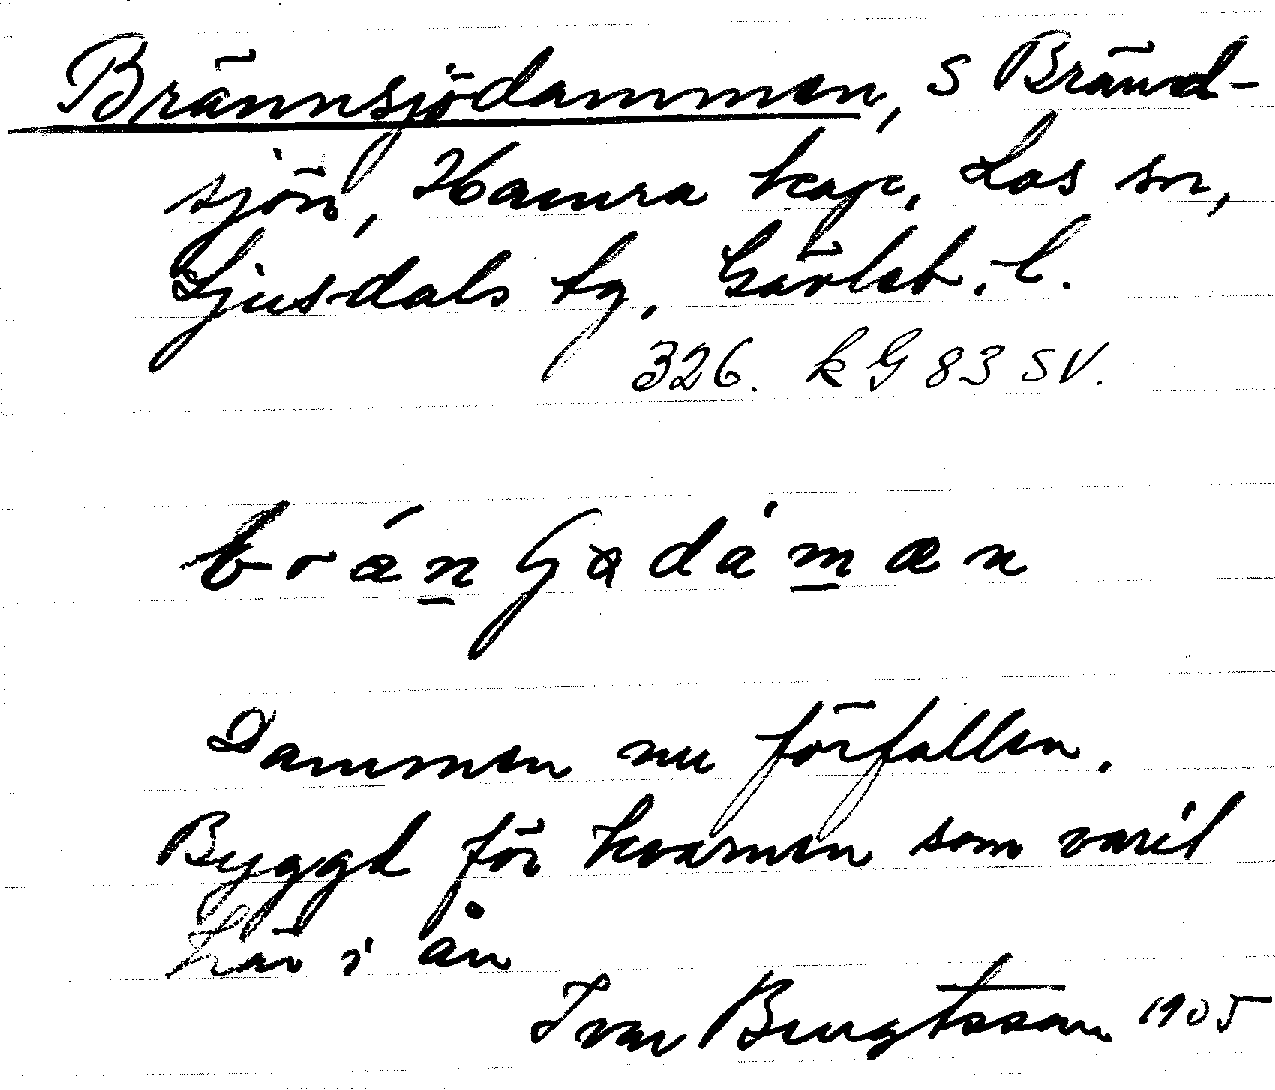 Brännsjödammen, S Bränd-
sjön, Hamra kap., Los sn,
Ljusdals tg, Gävleb. l.
326. kG 83 SV.
Dammen nu förfallen.
Byggd för kvarnen som varit
här i ån
Ivar Bengtsson 1905